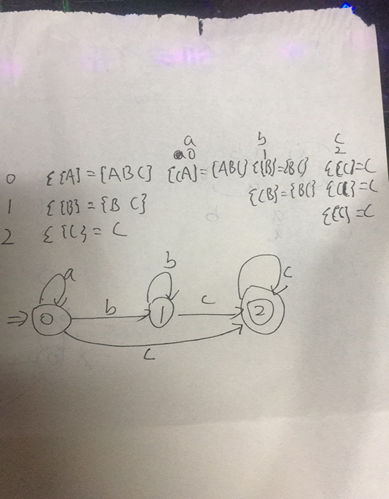 a b c
0 1 2
0 ξ{A} = {ABC} ξ{A} = {ABC} ξ{B} = {BC} ξ{C} = C
1 ξ{B} = {B C} ξ{B} = {BC} ξ{C} = C
2 ξ{C} = C ξ{C} = C
a b c
⇒ 0 b 1 c 2
c